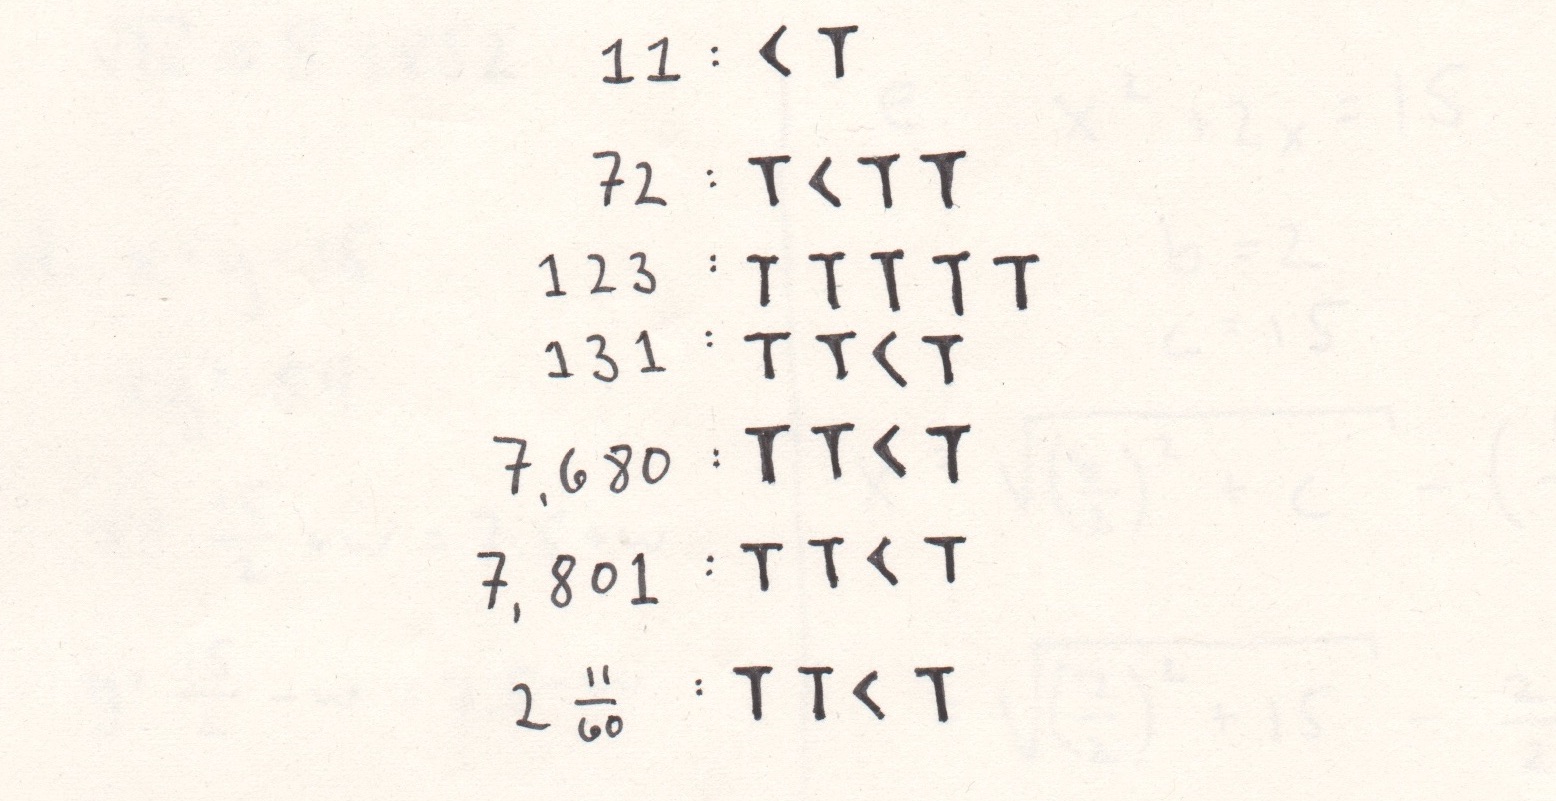 11 : < T
72 : T < T T
123 : T T T T T
131 : T T < T
7,680 : T T < T
7,801 : T T < T
2 11/60 : T T < T